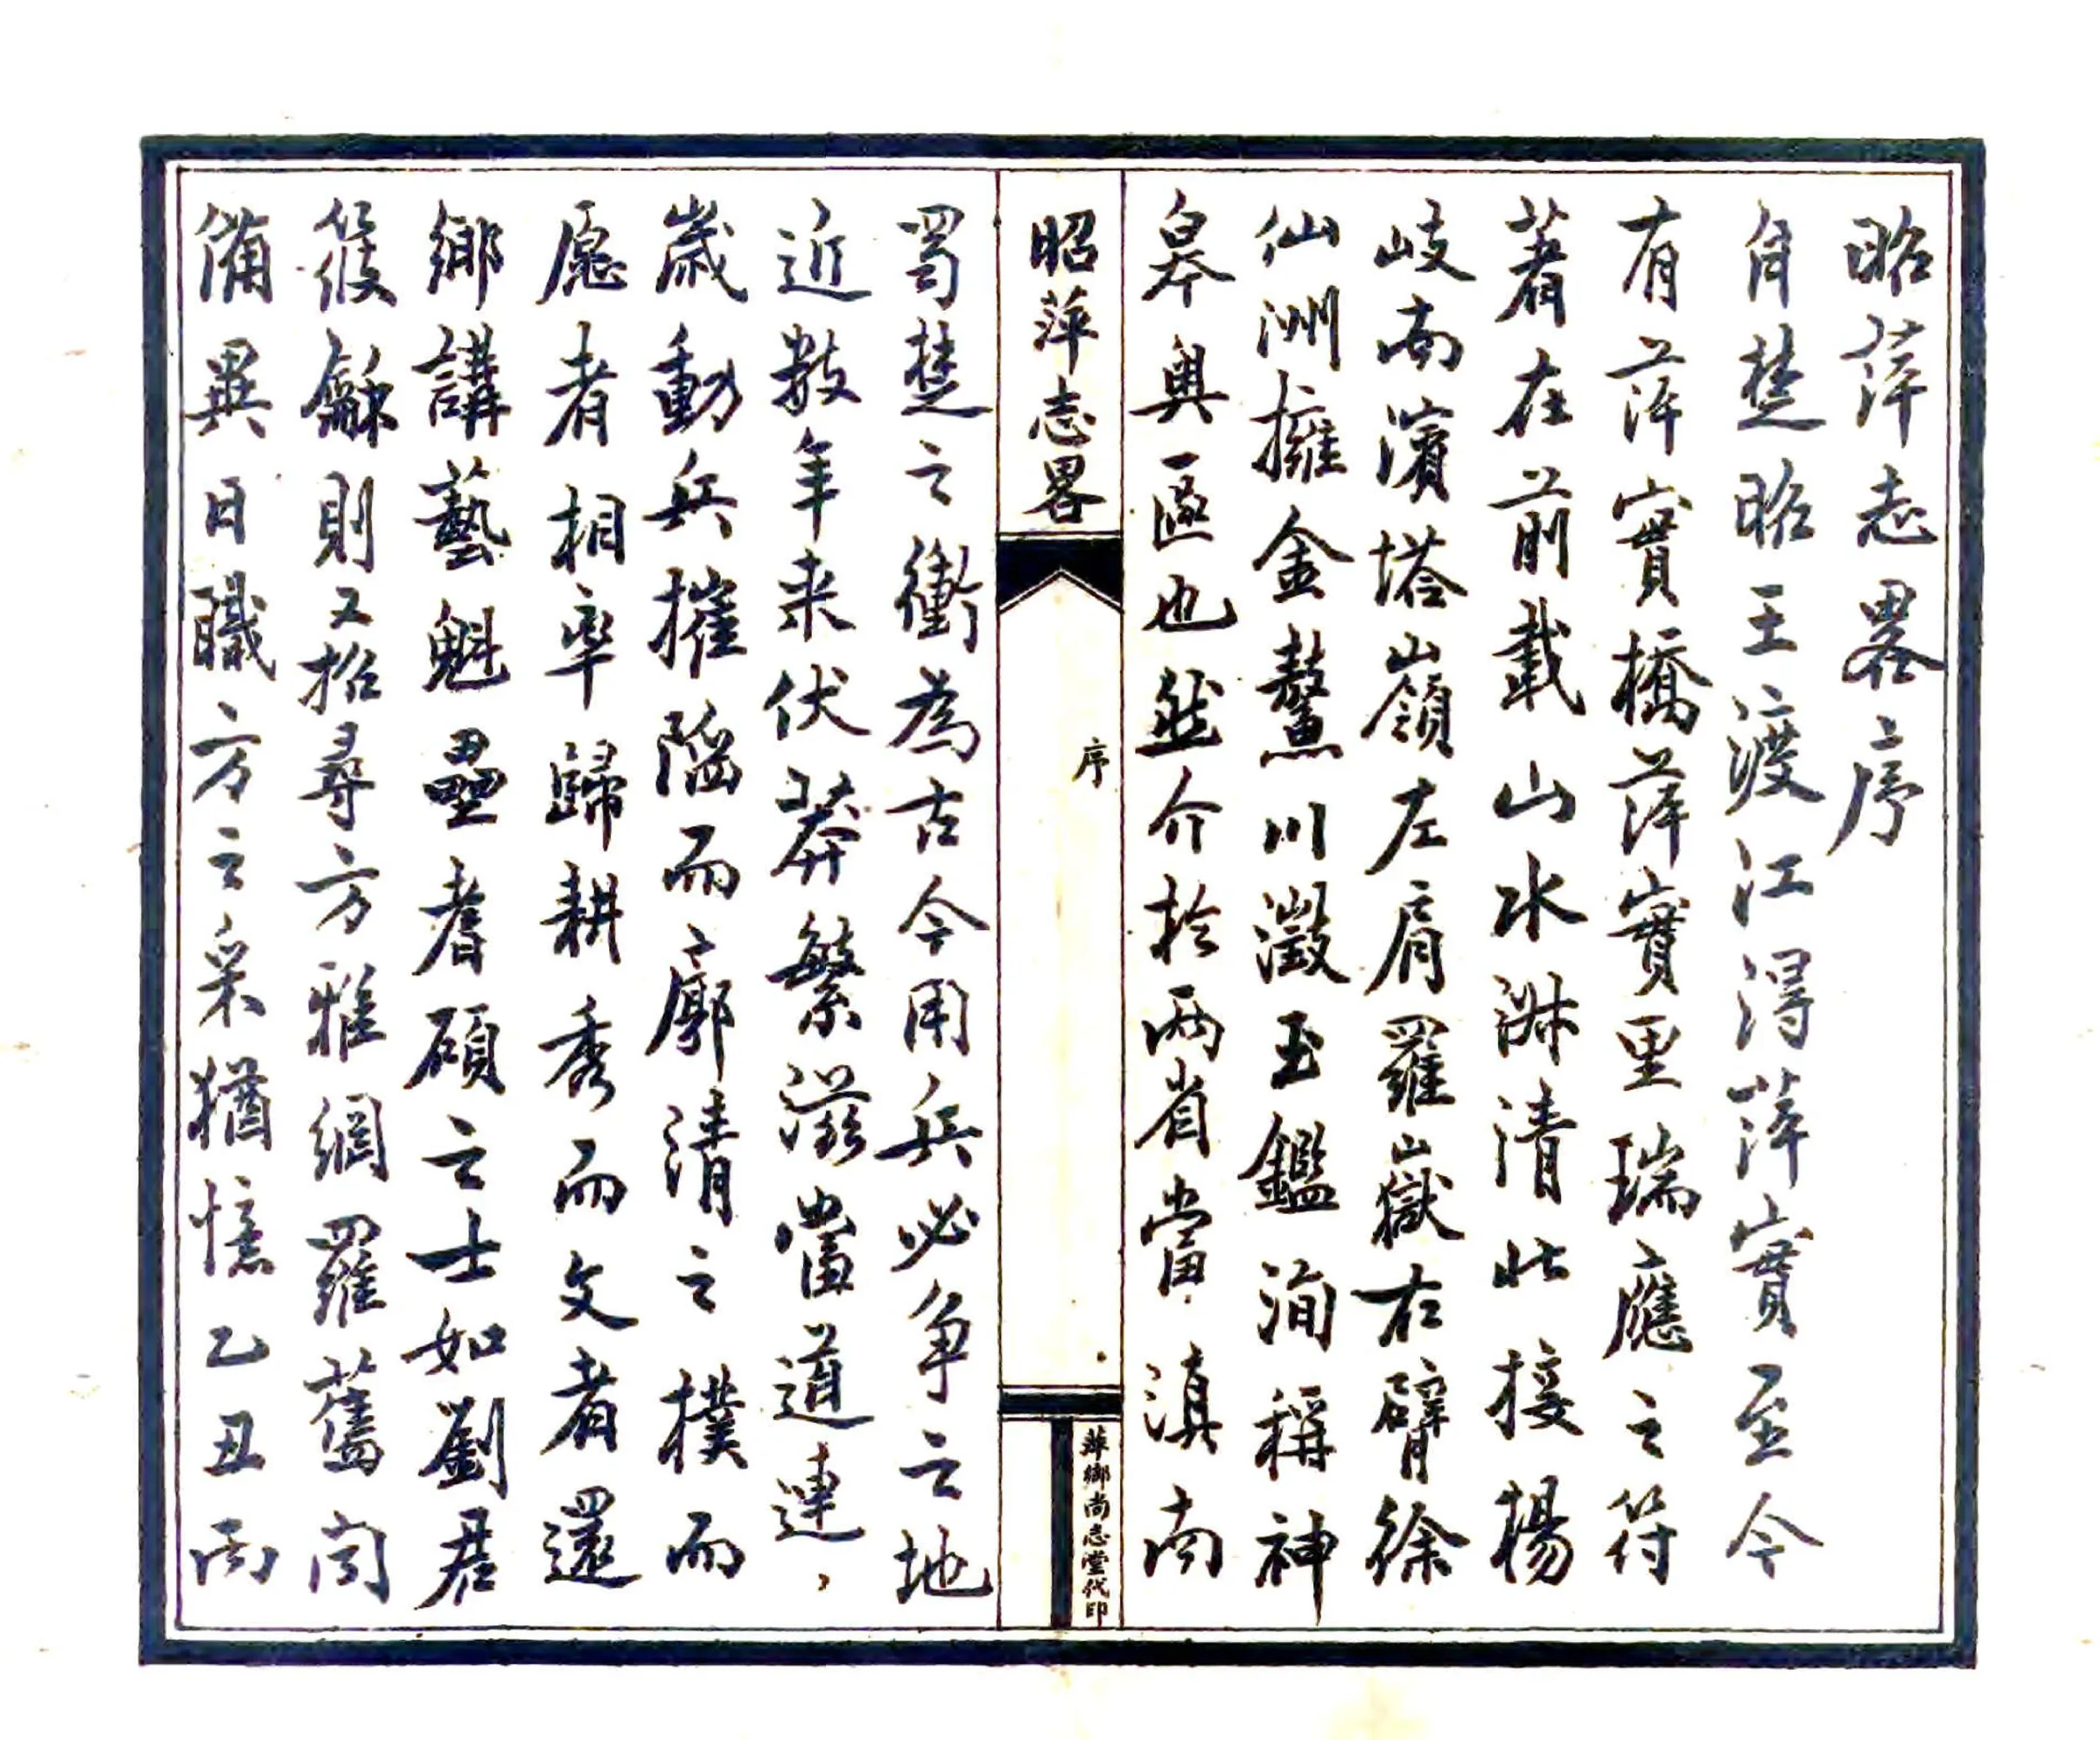 昭萍志畧序
自楚昭王渡江得萍實至今
有萍實橋萍實里瑞應之符
著在前載山水淋清北接楊
岐南濱塔嶺左肩羅嶽右臂徐
仙洲擁金鰲川澂玉鑑洵稱神
皋奧區也然介於兩省當滇南
昭萍志畧
序
萍鄉尚志堂代印
蜀楚之衝為古今用兵必爭之地
近數年来伏莽繁滋當道連、
歲動兵摧陷而廓清之樸而
愿者相率歸耕秀而文者還
鄉講藝魁壘耆碩之士如劉君
筱龢則又招尋方雅網羅舊聞
備異日職方之采猶憶乙丑丙